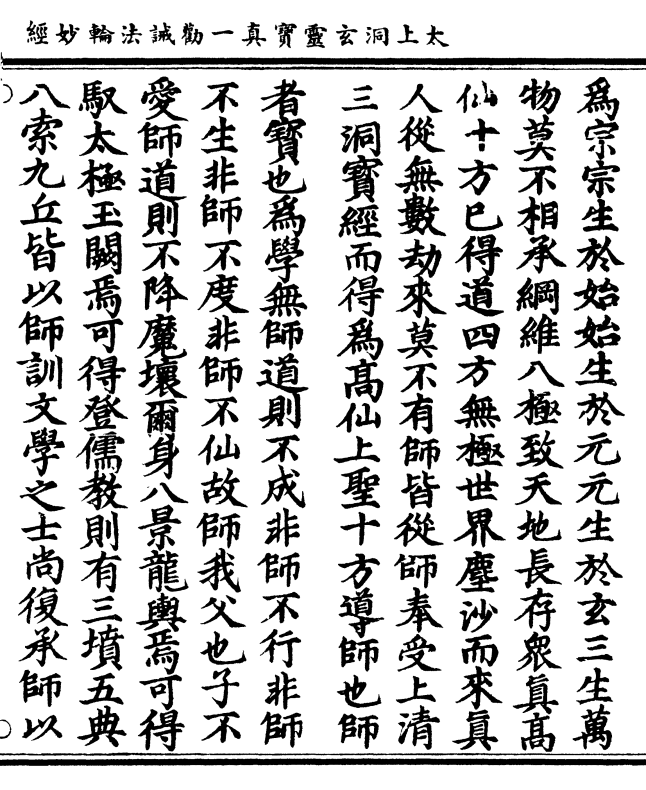 太上洞玄靈寶真一勸誡法輪妙經
爲宗宗生於始始生於元元生於玄三生萬
物莫不相承綱維八極致天地長存衆真高
仙十方已得道四方無極世界塵沙而來真
人從無數劫來莫不有師皆從師奉受上清
三洞寶經而得爲高仙上聖十方導師也師
者寶也爲學無師道則不成非師不行非師
不生非師不度非師不仙故師我父也子不
愛師道則不降魔壞爾身八景龍輿焉可得
馭太極玉闕焉可得登儒教則有三墳五典
八索九丘皆以師訓文學之士尚復承師以